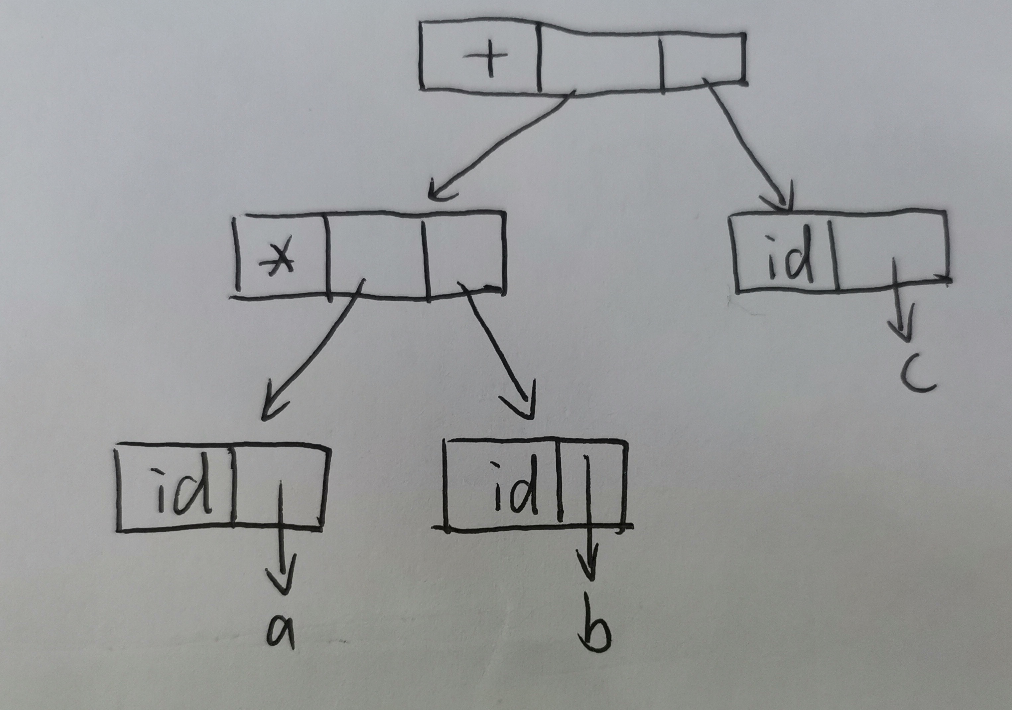 +
* id
c
id id
a b